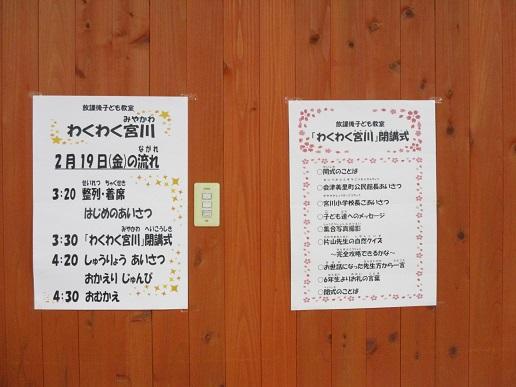 放課後子ども教室
みやかわ
わくわく宮川
ながれ
2月19日(金)の流れ
せいれつ ちゃくせき
3:20 整列・着席
はじめのあいさつ
みやかわ へいこうしき
3:30 「わくわく宮川」閉講式
4:20 しゅうりょう あいさつ
おかえり じゅんび
4:30 おむかえ
放課後子ども教室
「わくわく宮川」閉講式
○開式のことば
○会津美里町公民館長あいさつ
○宮川小学校長ごあいさつ
○子ども達へのメッセージ
○集合写真撮影
○片山先生の自然クイズ
～完全攻略できるかな～
○お世話になった先生方から一言
○6年生よりお礼の言葉
○閉式のことば